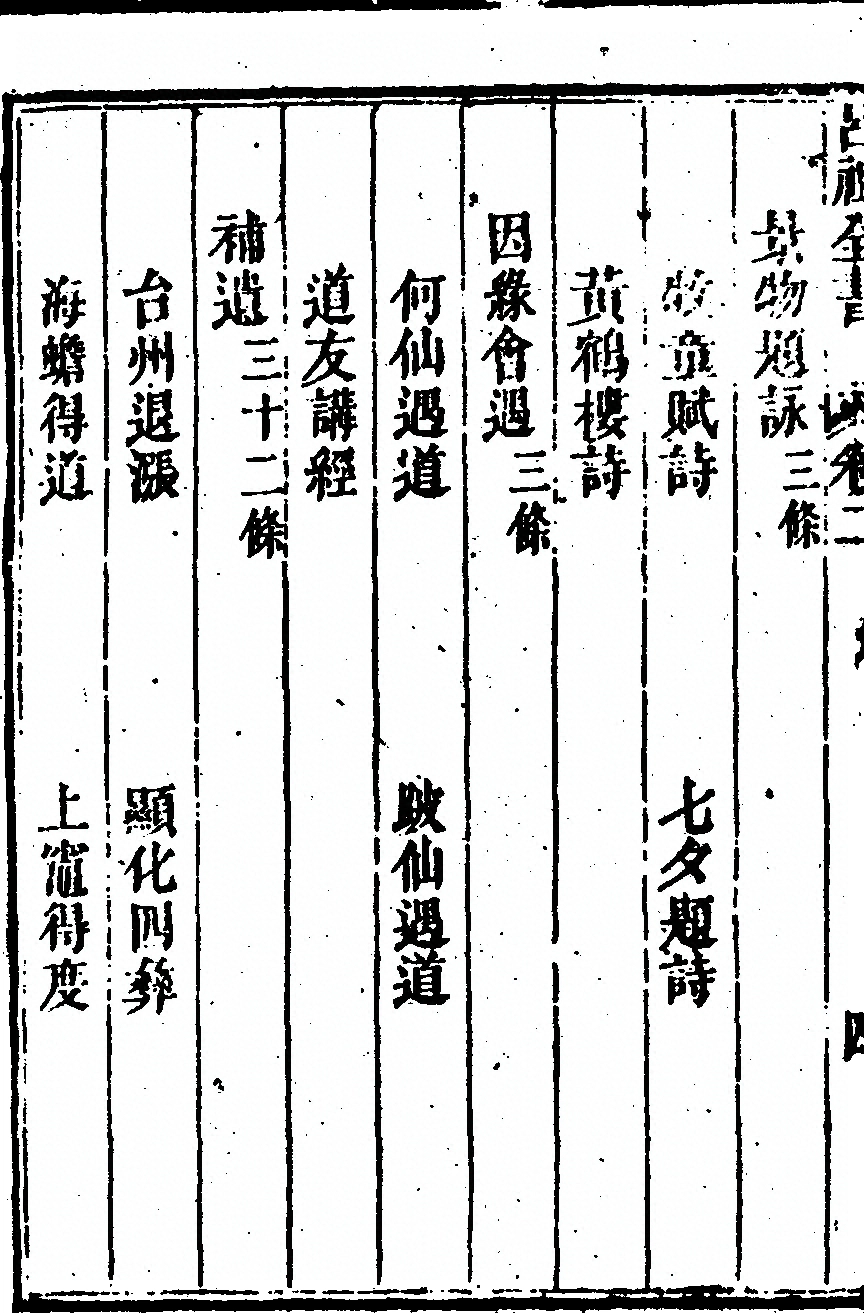 呂祖全書 卷二 四
景物題詠三條
牧童賦詩 七夕題詩
黃鶴樓詩
因緣會遇三條
何仙遇道 跛仙遇道
道友講經
補遺三十二條
台州退漲 顯化四彝
海蟾得道 上竈得度